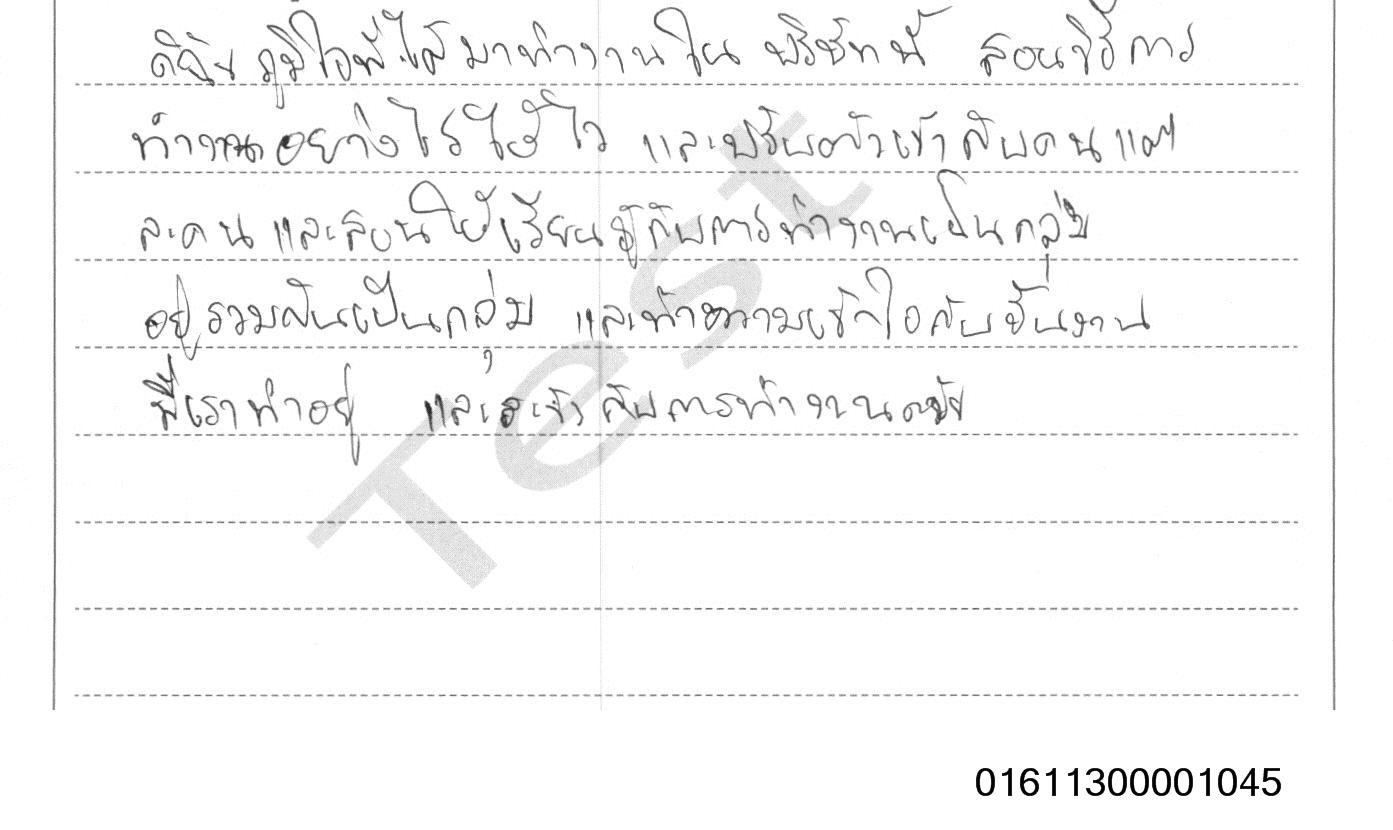 ดิฉันภูมิใจที่ได้มาทำงานใน บริษัทนี้ สอนวิธีการ
ทำงานอยางไรให้ไว และปรับตัวเข้ากับคนแต่
ละคน และสอนให้เรียนรู้กับการทำงานเป็นกลุ่ม
อยู่รวมกันเป็นกลุ่ม และทำความเข้าใจกับชิ้นงาน
ที่เราทำอยู่ และ กับการทำงาน
Test
01611300001045